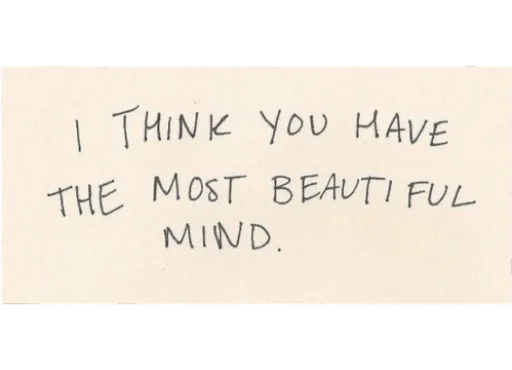 I THINK YOU HAVE
THE MOST BEAUTIFUL
MIND.